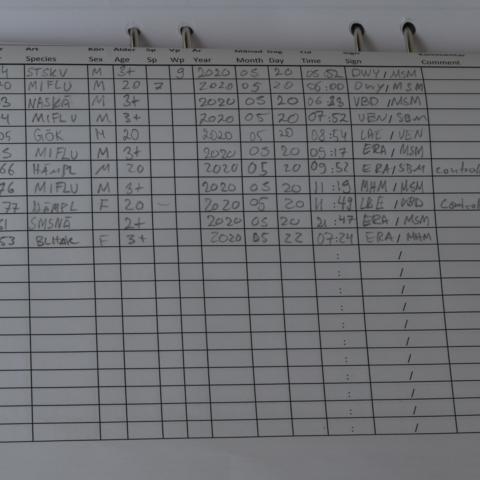 Art Kön Ålder Sp Vp År Månad Dag Tid Sign
Species Sex Age Sp Wp Year Month Day Time Sign Comment
4 STSKV M 3+ 9 2020 05 20 05:52 DWY / MSM
0 MIFLU M 20 7 2020 05 20 06:00 DWY / MSM
3 NASKÄ M 3+ 2020 05 20 VBD / MSM
4 MIFLU M 3+ 2020 05 20 07:52 VEN / SBM
05 GÖK M 20 2020 05 20 08:54 LAE / VEN
5 MIFLU M 3+ 2020 05 20 09:17 ERA / MSM
66 HÄMPL M 20 2020 05 20 09:52 ERA / SBM control
76 MIFLU M 3+ 2020 05 20 11:19 MHM / MSM
77 HÄMPL F 20 – 2020 05 20 11:49 / VBD Control
61 SMSNÄ 2+ 2020 05 20 21:47 ERA / MSM
53 BLHAK F 3+ 2020 05 22 07:24 ERA / MHM
: /
: /
: /
: /
: /
: /
: /
: /
: /
: /
: /